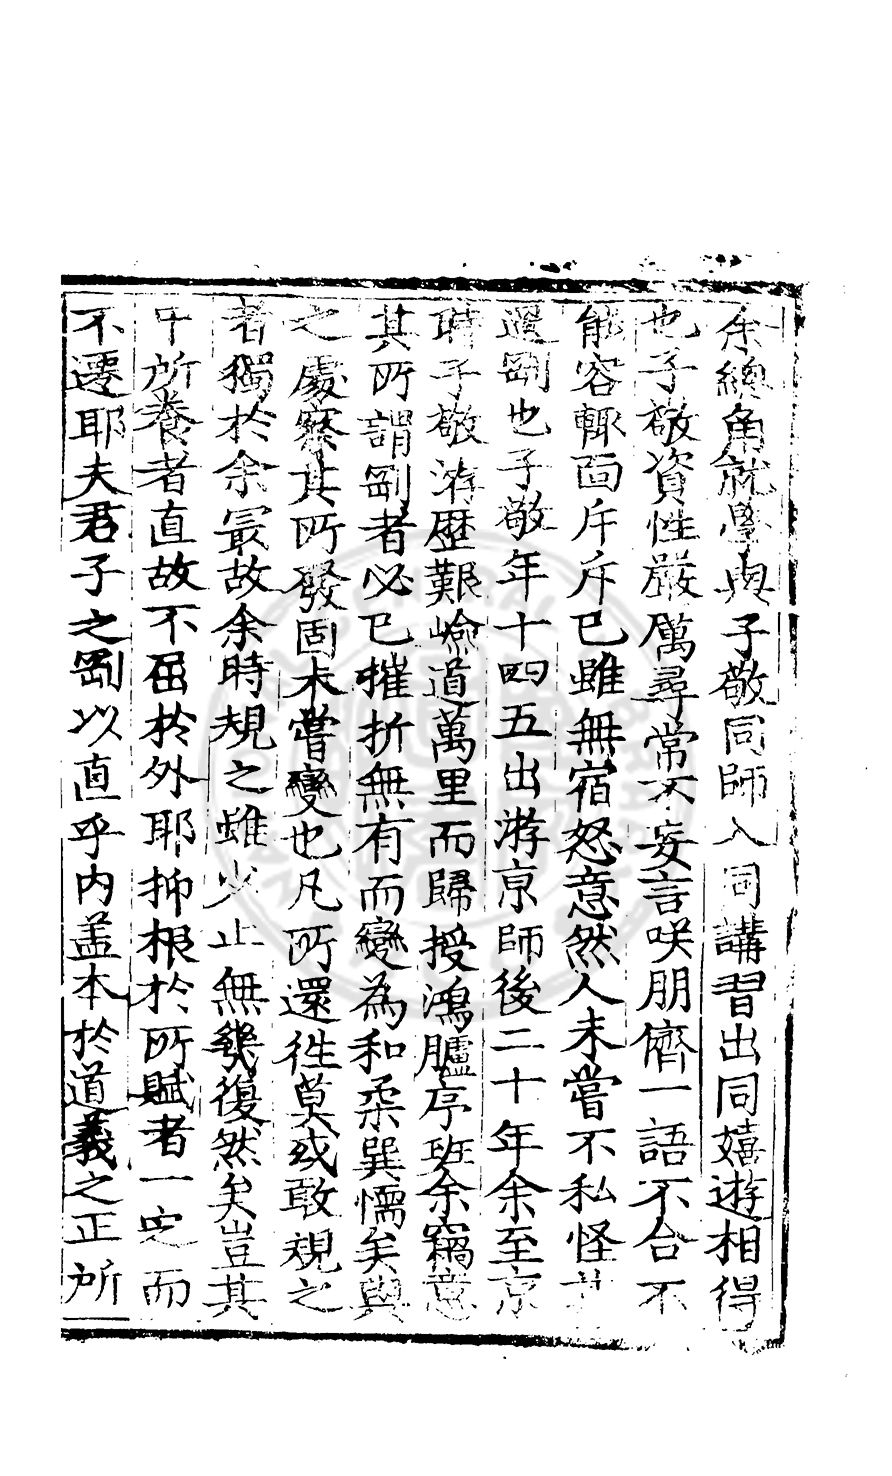 余緫角就學與子敬同師入同講習出同嬉遊相得
也子敬資性嚴厲尋常不妄言咲朋儕一語不合不
能容輙面斥斥已雖無宿怒意然人未嘗不私怪其
過剛也子敬年十四五出游京師後二十年余至京
時子敬游歷艱嶮道萬里而歸授鴻臚序班余竊意
其所謂剛者必已摧折無有而變為和柔巽懦矣與
之處察其所發固未嘗變也凡所還徃莫或敢規之
者獨於余㝡故余時規之雖少止無幾復然矣豈其
中所養者直故不屈於外耶抑根於所賦者一定而
不遷耶夫君子之剛以直乎内盖本於道義之正所